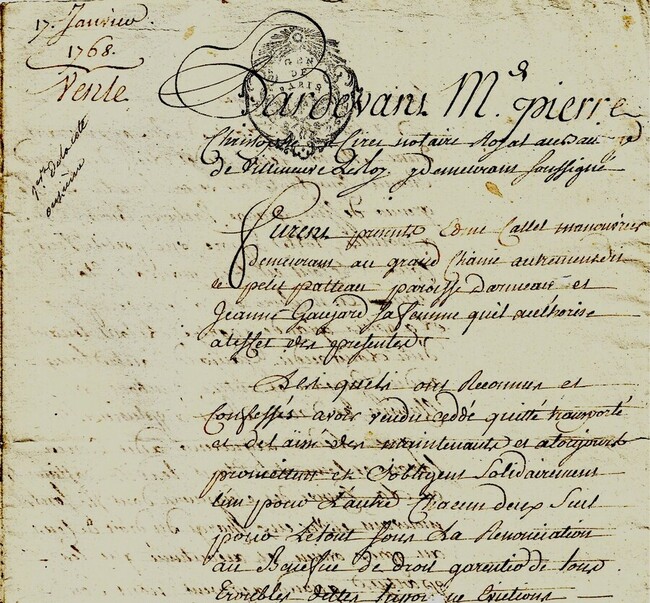 17. Janvier
1768.
Vente
GEN
DE
PARIS
Pardevant Me. pierre
Christophe Cires notaire Royal au
de Villeneuve Leroy y demeurant soussigné
Furent presents Edme Callet manouvrier
demeurant au grand Chaine autrement dit
le petit patteau paroisse Darmeau et
Jeanne Gaujard sa femme quil authorise
a leffet des presentes
Les quels ont Reconnus et
Confessés avoir vendu ceddé quitté transporté
et delaissé des maintenant et atoujours
promettent et Sobligent Solidairement
lun pour Lautre Chacun deux Seul
pour Letout sous La Renonciation
au Benefice de droit garentir de tous
troubles dettes hipoteque Evictions